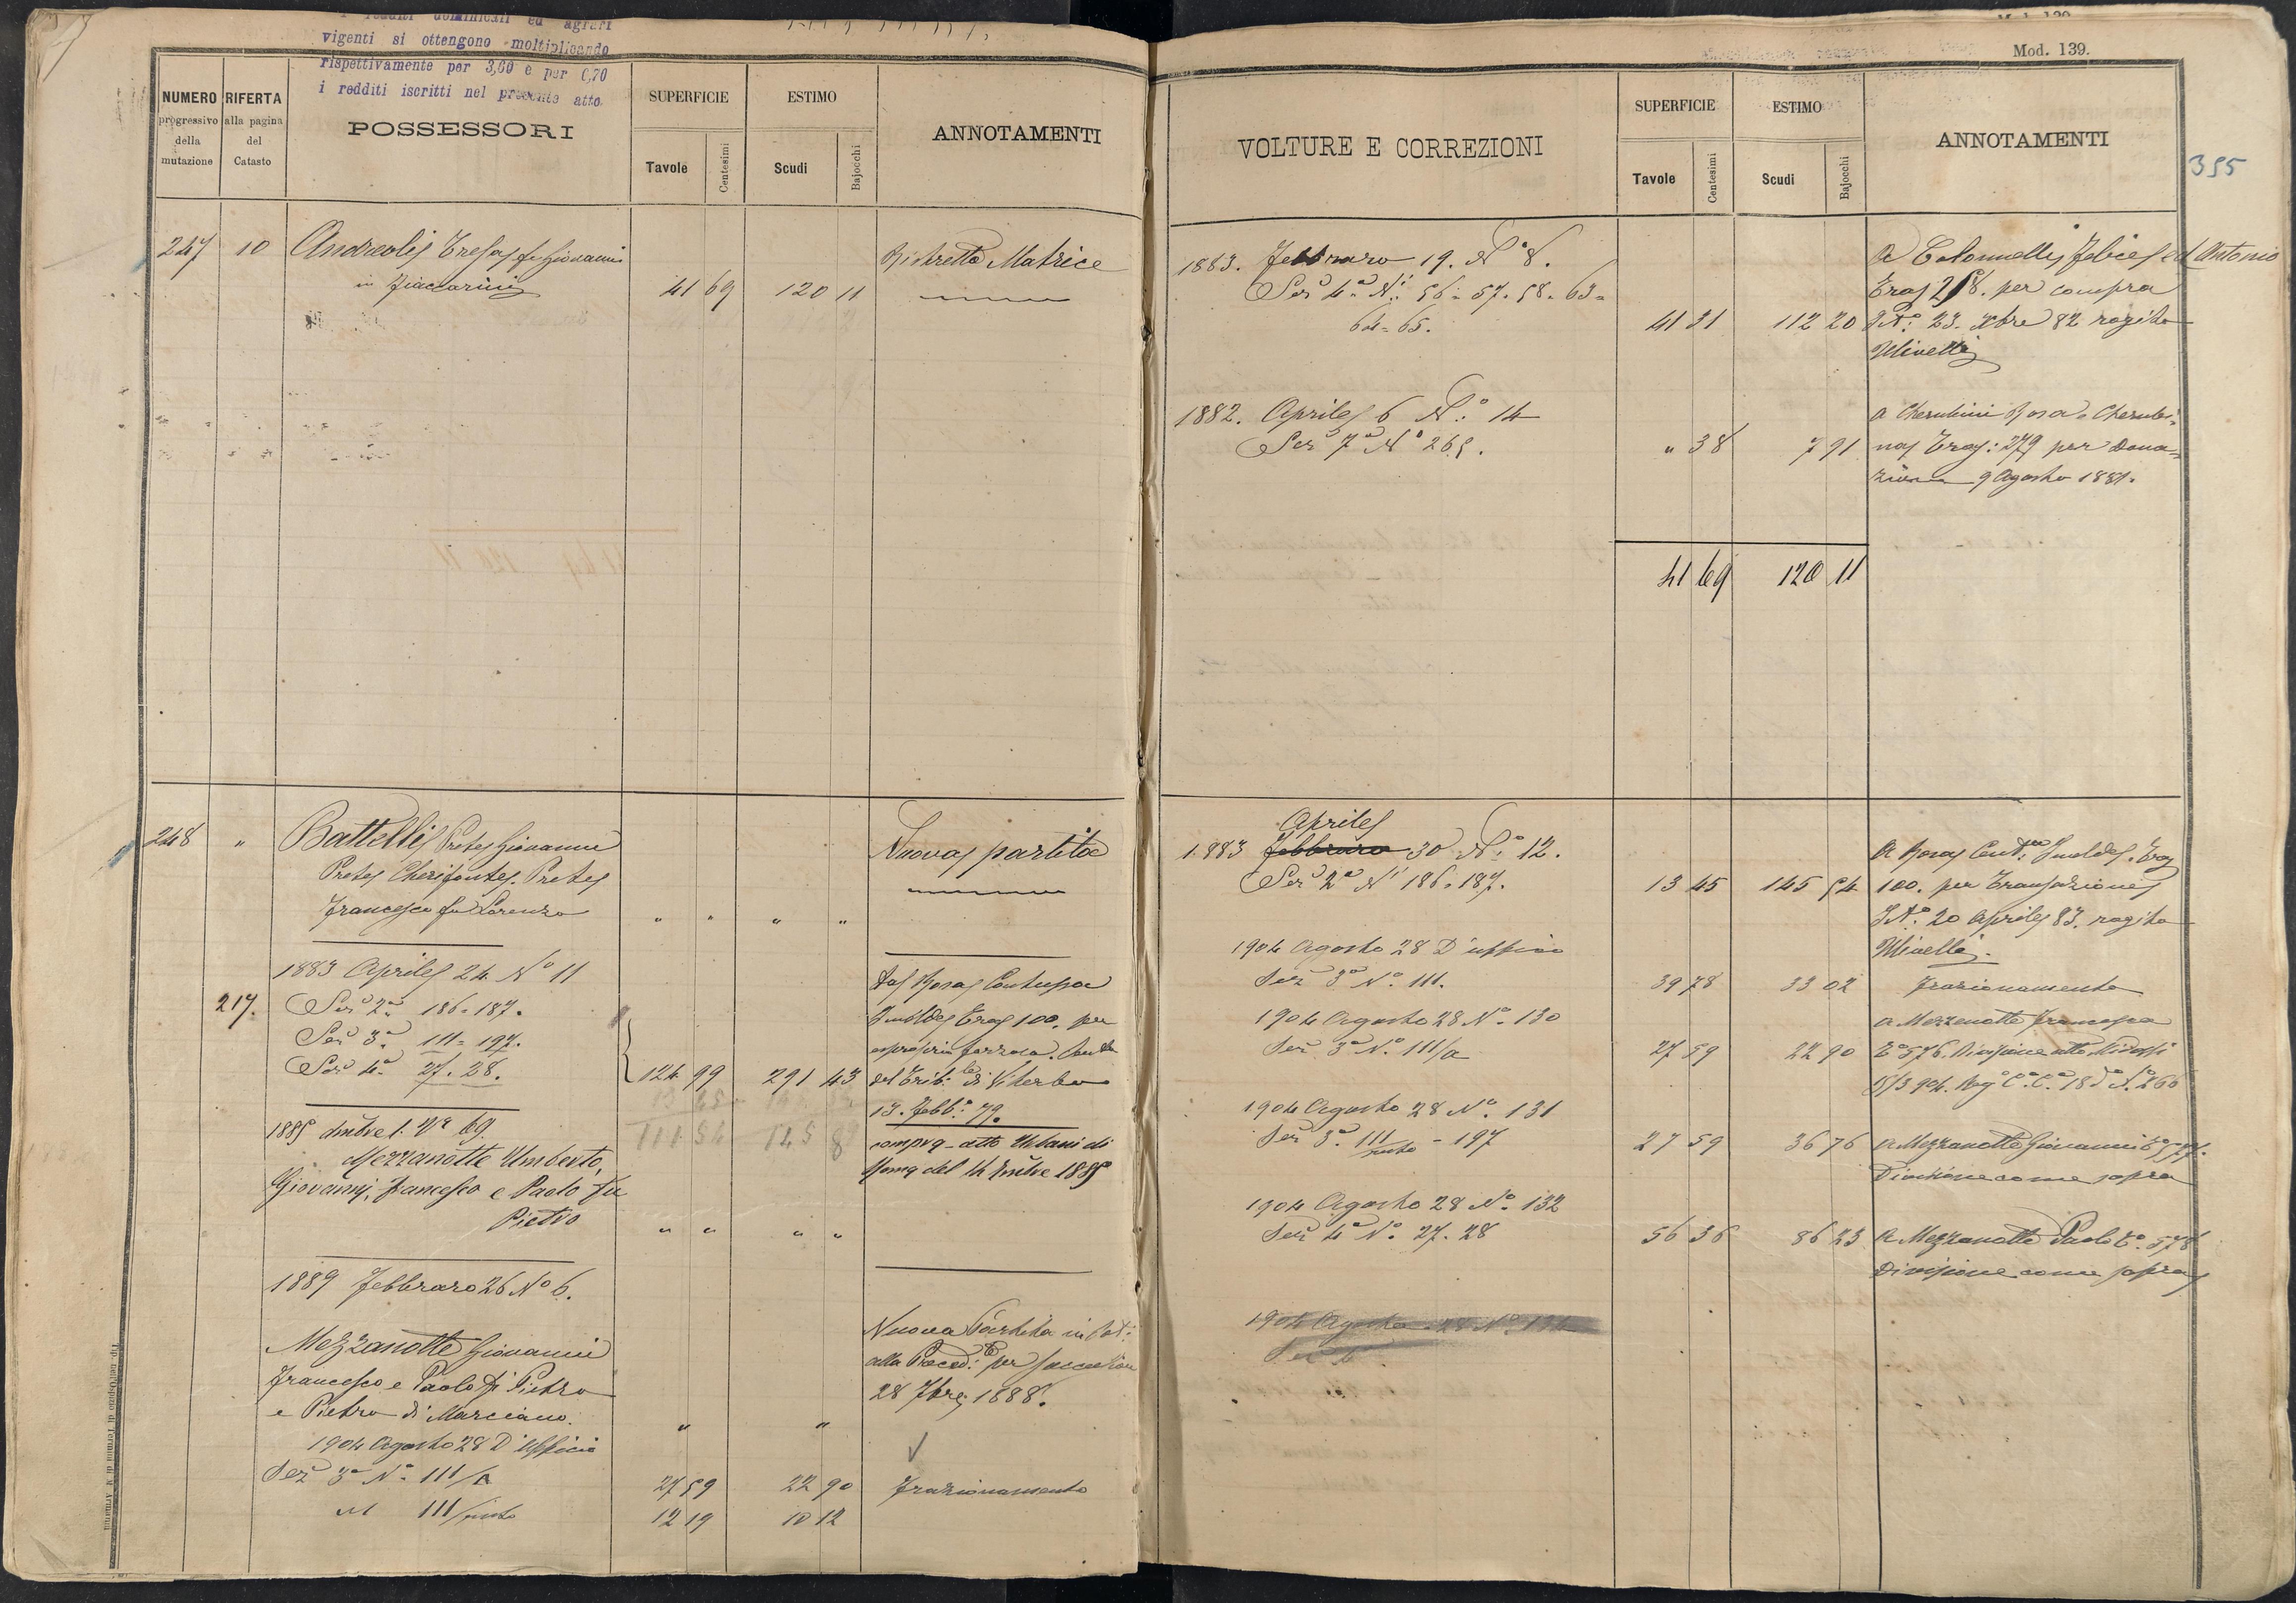 i redditi dominicali ed agrari
vigenti si ottengono moltiplicando
rispettivamente per 3,60 e per 0,70
i redditi iscritti nel presente atto
NUMERO
progressivo
della
mutazione
RIFERTA
alla pagina
del
Catasto
POSSESSORI
SUPERFICIE
Tavole
Centesimi
ESTIMO
Scudi
Bajocchi
ANNOTAMENTI
247 10 Andreoli Teresa fu Giovanni
in Ziaccarini 41 69 120 11
Ristretto Matrice
248 " Battelli Prete Giovanni
Prete Cherifonte. Prete
Francesco fu Lorenzo " " " "
Nuova partita
1883 Aprile 24 No 11
217. Sez 2a 186=187.
Sez 3a 111=197.
Sez 4a 27. 28. 124 99 291 43
13 45 145 54
111 54 145 8
da Rosa Contessa
Imolde Trag 100. per
espropria forzosa.
del Trib.le di Viterbo
13. Febb.o 79.
1885 1. No 69.
Mezzanotte Umberto,
Giovanni, Francesco e Paolo fu
Pietro " " " "
compra atto Urbani di
Roma del 14 1885
1889 Febbraro 26 No 6.
Mezzanotte Giovanni
Francesco e Paolo fu Pietro
e Pietro di Marciano. " "
Nuova Partita in
alla Preced: per successione
28 7bre 1888.
1904 Agosto 28 D'ufficio
Sez 3a No 111/A 27 59 22 90 frazionamento
111/resto 12 19 10 12
Mod. 139.
355
VOLTURE E CORREZIONI
SUPERFICIE
Tavole
Centesimi
ESTIMO
Scudi
Bajocchi
ANNOTAMENTI
1883. Febbraro 19. No 8.
Sez 4a Ni 56=57=58=63=
64=65. 41 31 112 20
A Colonnelli Felice ed Antonio
Trag 258. per compra
23. Xbre 82 rogito
Ulivelli
1882. Aprile 6 No 14
Sez 7a No 265. " 38 7 91
a Cherubini Rosa Cherubi-
na Trag: 279 per Dona-
zione 9 Agosto 1881.
41 69 120 11
Aprile
1883 Febbraro 30 No 12.
Sez 2a Ni 186=187. 13 45 145 54
A Rosa Cont.ssa Imolde. Trag
100. per Transazione
20 Aprile 83. rogito
Ulivelli.
1904 Agosto 28 D'ufficio
Sez 3a No 111. 39 78 33 02 frazionamento
1904 Agosto 28 No 130
Sez 3a No 111/a 27 59 22 90
a Mezzanotte Francesco
To 576. Divisione atto
1904 Agosto 28 No 131
Sez 3a 111/resto - 197 27 59 36 76 a Mezzanotte Giovanni To 577.
Divisione come sopra
1904 Agosto 28 No 132
Sez 4a No 27. 28 56 36 86 23 A Mezzanotte Paolo To 578
Divisione come sopra
1904 Agosto 28 No
Sez